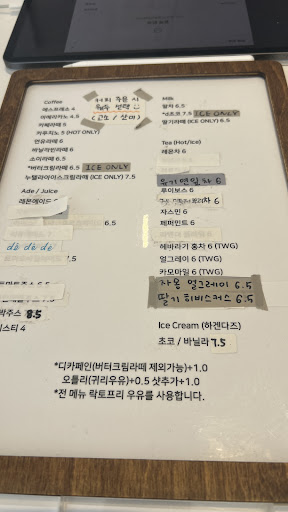 Coffee
에스프레소 4
아메리카노 4.5
카페라떼 5
카푸치노 5 (HOT ONLY)
연유라떼 6
바닐라빈라떼 6
소이라떼 6.5
*버터크림라떼 6.5 ICE ONLY
누텔라아이스크림라떼 (ICE ONLY) 7.5
커피 주문 시
원두 선택
(고소 / 산미)
Milk
말차 6.5
*넛초코 7.5 ICE ONLY
딸기라떼 (ICE ONLY) 6.5
Tea (Hot/Ice)
레몬차 6
유기연잎차 6
루이보스 6
자스민 6
페퍼민트 6
해바라기 홍차 6 (TWG)
얼그레이 6 (TWG)
카모마일 6 (TWG)
자몽 얼그레이 6.5
딸기 히비스커스 6.5
Ade / Juice
레몬에이드
6.5
dé dé dé
8.5
4
Ice Cream (하겐다즈)
초코 / 바닐라 7.5
*디카페인(버터크림라떼 제외가능)+1.0
오틀리(귀리우유)+0.5 샷추가+1.0
*전 메뉴 락토프리 우유를 사용합니다.